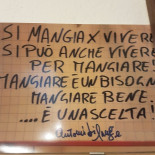 SI MANGIA X VIVERE
SI PUÒ ANCHE VIVERE
PER MANGIARE!
MANGIARE È UN BISOGNO
MANGIARE BENE
.... È UNA SCELTA!